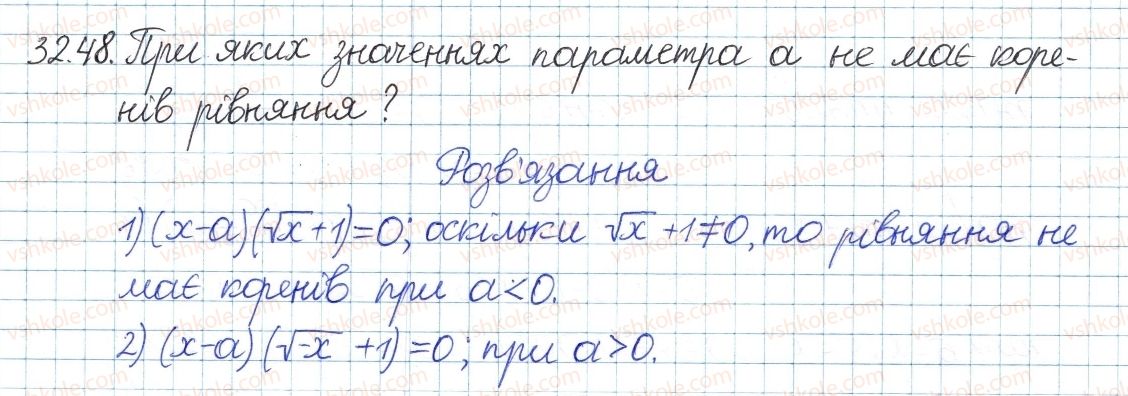 32.48. При яких значеннях параметра а не має коре-
нів рівняння?
Розв'язання
1) (x-a)(√x+1)=0; оскільки √x +1≠0, то рівняння не
має коренів при a<0.
2) (x-a)(√-x +1)=0; при a>0.